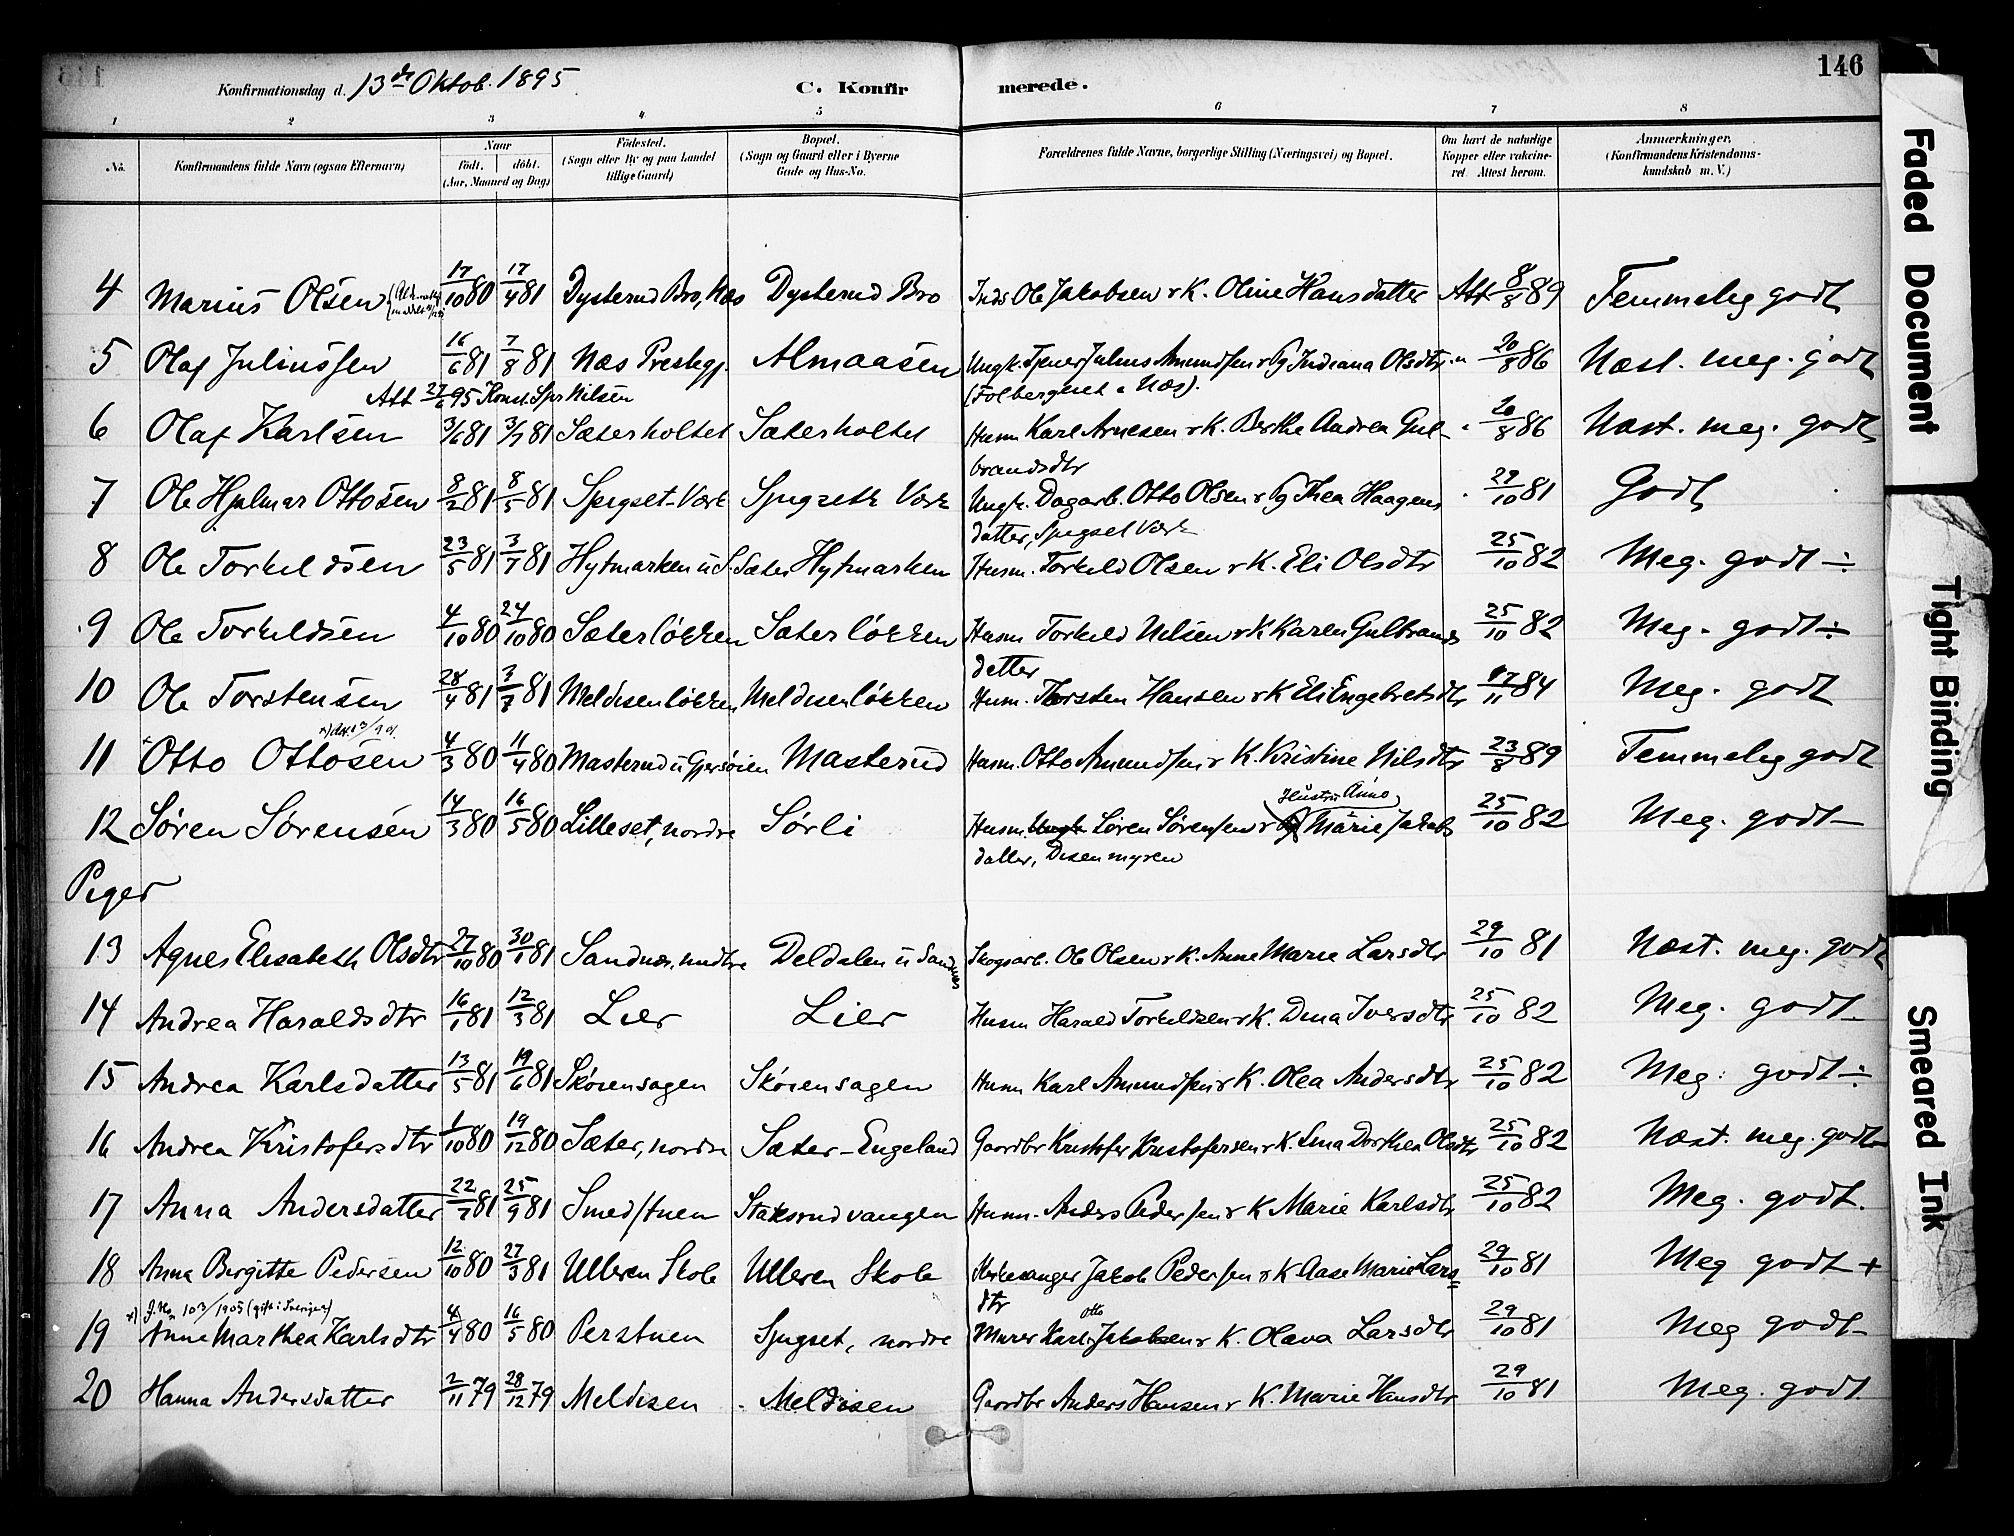 146
Konfirmationsdag d. 13de Oktob. 1895
C. Konfirmerede.
1 2 3 4 5 6 7 8
No. Konfirmandens fulde Navn (ogsaa Efternavn) Naar født, døbt. (Aar, Maaned og Dag) Fødested. (Sogn eller By og paa Landet tillige Gaard) Bopæl. (Sogn og Gaard eller i Byerne Gade og Hus-No. Forældrenes fulde Navne, borgerlige Stilling (Næringsvei) og Bopæl. Om havt de naturlige Kopper eller vakcineret. Attest herom. Anmærkninger, (Konfirmandens Kristendomskundskab m. V.)
4 Marius Olsen 17/10 80 17/4 81 Dysterud Bro, Næs Dysterud Bro Inds. Ole Jakobsen & K. Oline Hansdatter Att 8/8 89 Temmelig godt
5 Olaf Juliussen 16/6 81 7/8 81 Næs Prestegj. Almaasen Ungk. Julius Amundsen & Pg Indiana Olsdtr. " 20/8 86 Næst. meg. godt
Att 27/6 95 Konst. Spr Nilsen (Folberget i Næs).
6 Olaf Karlsen 3/6 81 3/7 81 Sæterholtet Sæterholtet Husm Karl Arnesen & K. Berthe Andrea Gul- " 20/8 86 Næst. meg. godt
brandsdtr
7 Ole Hjalmar Ottosen 8/2 81 8/5 81 Spigset-Værk Spigseth Værk Ungk. Dagarb. Otto Olsen & Pg Thea Haagens " 29/10 81 Godt
datter, Spigset Værk
8 Ole Torkeldsen 23/5 81 3/7 81 Hytmarken u. S. Sæter Hytmarken Husm. Torkeld Olsen & K. Eli Olsdtr 25/10 82 Meg. godt ÷
9 Ole Torkeldsen 4/10 80 24/10 80 Sæterløkken Sæterløkken Husm Torkeld Nilsen & K Karen Gulbrands 25/10 82 Meg. godt ÷
datter
10 Ole Torstensen 28/4 81 3/7 81 Meldisenløkken Meldisenløkken Husm. Thorsten Hansen & K Eli Engebretsdtr 17/11 84 Meg. godt
11 Otto Ottosen 4/3 80 11/4 80 Masterud u Gjersøien Masterud Husm. Otto Amundsen & K. Kristine Nilsdtr 23/8 89 Temmelig godt
Hustru Anne
12 Søren Sørensen 14/3 80 16/5 80 Lilleset, nordre Sørli Husm. Ungk. Søren Sørensen & Pg Marie Jakobs 25/10 82 Meg. godt –
datter, Disenmyren
Piger
13 Agnes Elisabeth Olsdtr 27/10 80 30/1 81 Sandnæs, midtre Deldalen u Sandnæs Skogsarb. Ole Olsen & K. Anne Marie Larsdtr 29/10 81 Næst. meg. godt
14 Andrea Haraldsdtr 16/1 81 12/3 81 Lier Lier Husm Harald Torkeldsen & K. Dina Iversdtr 25/10 82 Meg. godt –
15 Andrea Karlsdatter 13/5 81 19/6 81 Skøiensagen Skøiensagen Husm Karl Amundsen & K. Olea Andersdtr 25/10 82 Meg. godt ÷
16 Andrea Kristofersdtr 1/10 80 19/12 80 Sæter, nordre Sæter-Engeland Gaardbr Kristofer Kristofersen & K. Lina Dorthea Olsdtr 25/10 82 Næst. meg. godt
17 Anna Andersdatter 22/7 81 25/9 81 Smedstuen Staksrudvangen Husm. Anders Pedersen & K Marie Karlsdtr 25/10 82 Meg. godt.
18 Anna Bergitte Pedersen 12/10 80 27/3 81 Ulleren Skole Ulleren Skole Kirkesanger Jakob Pedersen & K Aase Marie Lars= 29/10 81 Meg godt +
dtr
103/1905 (gift i Sverige)
19 Anne Marthea Karlsdtr 4/4 80 16/5 80 Perstuen Spigset, nordre Murer Karl Otto Jakobsen & K. Olava Larsdtr 29/10 81 Meg godt –
20 Hanna Andersdatter 2/11 79 28/12 79 Meldisen Meldisen Gaardbr Anders Hansen & K. Marie Hansdtr 29/10 81 Meg. godt
Faded Document
Tight Binding
Smeared Ink